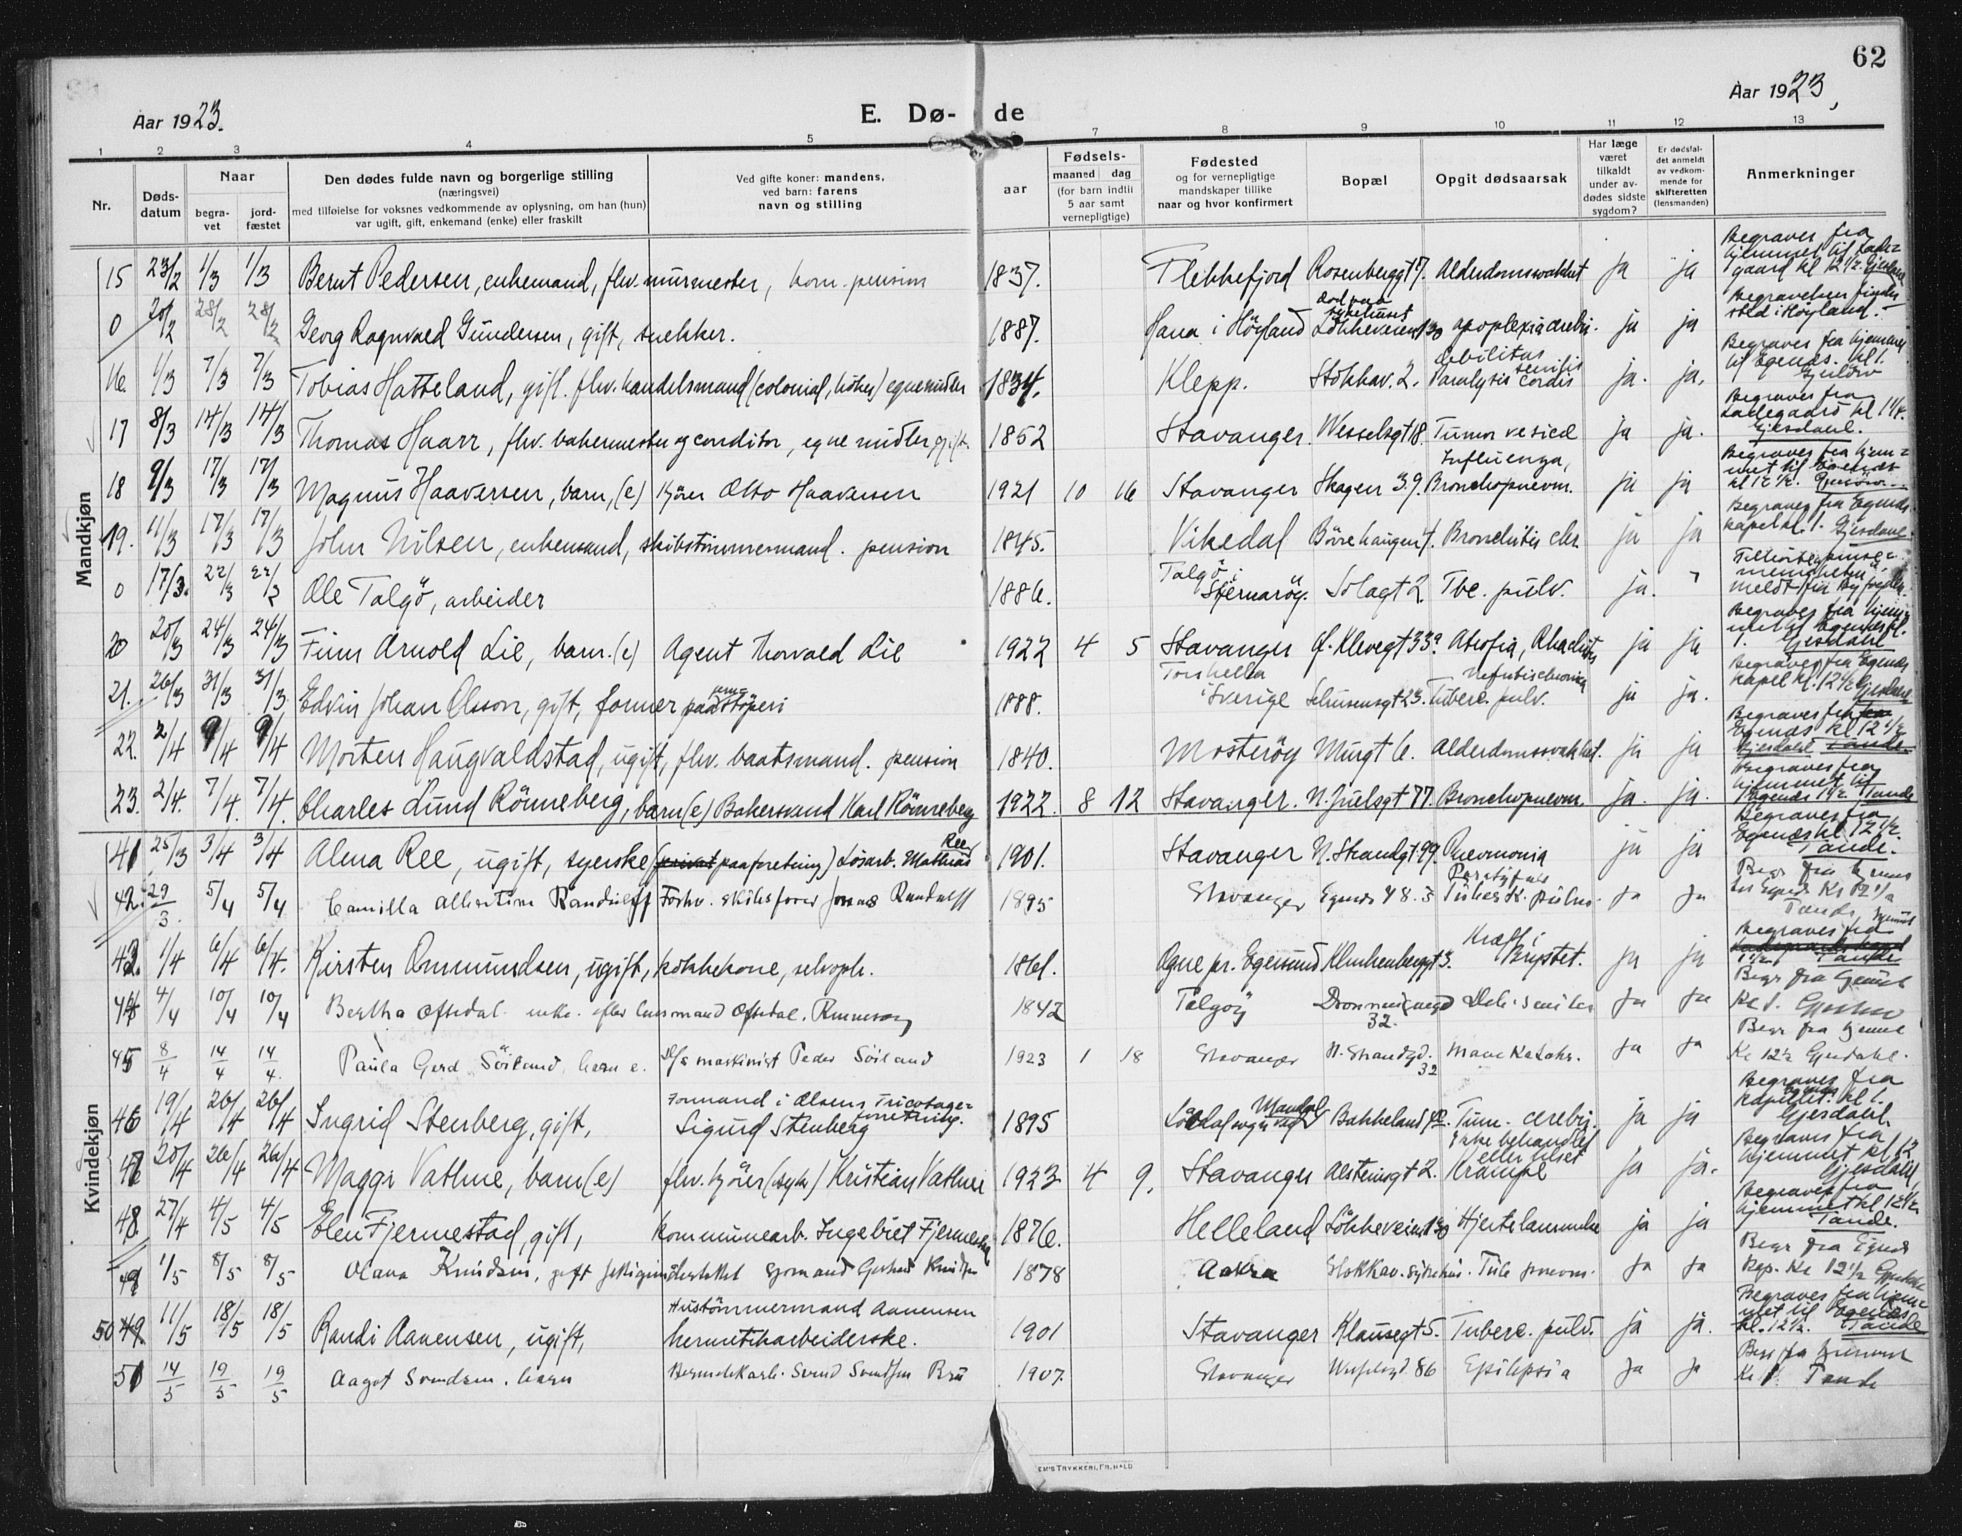 62
Aar 1923.
E. Dø- de
Aar 1923,
1 2 3 4 5 7 8 9 10 11 12 13
Nr.
Døds-
datum
Naar
begra-
vet
jord-
fæstet
Den dødes fulde navn og borgerlige stilling
(næringsvei)
med tilføielse for voksnes vedkommende av oplysning, om han (hun)
var ugift, gift, enkemand (enke) eller fraskilt
Ved gifte koner: mandens,
ved barn: farens
navn og stilling
Fødsels-
aar
maaned dag
(for barn indtil
5 aar samt
vernepligtige)
Fødested
og for vernepligtige
mandskaper tillike
naar og hvor konfirmert
Bopæl
Opgit dødsaarsak
Har læge
været
tilkaldt
under av-
dødes sidste
sygdom?
Er dødsfal-
det anmeldt
av vedkom-
mende for
skifteretten
(lensmanden)
Anmerkninger
Mandkjøn
15 23/2 1/3 1/3 Bernt Pedersen, enkemand, fhv. murmester, kom. pension 1837. Flekkefjord Rosenberggt 7. Alderdomssvakhet ja ja Begraves fra hjemmet til Lade-gaard kl 12 1/2. Gjesdahl
0 20/2 28/2 28/2 Georg Ragnvald Gundersen, gift, snekker. 1887. Hana i Höyland död paa sykehuset Lökkeveien 130 apoplexia cerebri. ja ja Begravelsen finder sted i Höyland.
16 1/3 7/3 7/3 Tobias Hatteland, gift. fhv. handelsmand (colonial, höker) egne midler 1834. Klepp. Stokkav. 2. debilitas senilis Paralysis cordis ja. ja. Begraves fra hjemmet til Egenæs. kl 1.
17 8/3 14/3 14/3 Thomas Haarr, fhv. bakermester og conditor, egne midler gift. 1852 Stavanger. Wesselsgt 18. Tumor vesicæ ja ja. Begraves fra Ladegaard kl 1 1/4. Gjesdahl.
18 9/3 17/3 17/3 Magnus Haaversen, barn, (e) kjörer Otto Haaversen 1921 10 16 Stavanger Skagen 39. Influenza, Bronchopneum. ja ja Begraves fra hjem-met til Egenæs kl 12 1/2.
19. 11/3 17/3 17/3 John Nilsen, enkemand, skibstömmermand. pension 1845. Vikedal Börehaugen 4. Bronchitis chr. ja ja Begraves fra Egenæs kapel kl. 1. Gjesdahl.
0 17/3. 22/3 22/3 Ole Talgö, arbeider 1886. Talgö i Sjernaröy. Solagt 2 Tbc. pulv. ja. Tilhörte pinse-menigheten meldt fra byfogden.
20 20/3 24/3 24/3 Finn Arnold Lie, barn. (e) Agent Thorvald Lie 1922 4 5 Stavanger Ø. Klevegt 33a Atrofia, Rhachitis ja ja Begraves fra hjem-met til Egenæs kl. 1. Gjesdahl
21. 26/3 31/3 31/3 Edvin Johan Olsson, gift, former paa støperi 1888. Torshella i Sverige 23. Nefritis chronica Tuberc. pulv. ja ja. Begraves fra Egenæs kapel kl. 12 1/2 Gjesdahl
22. 2/4 9/4 9/4 Morten Haugvaldstad, ugift, fhv. baatsmand. pension 1840. Mosteröy Murgt 6. Alderdomssvakhet. ja ja Begraves fra Egenæs kl 12 1/2 Gjesdahl Tande.
23. 2/4. 7/4. 7/4. Charles Lund Rönneberg, barn (e) Bakersvend Karl Rönneberg 1922. 8 12 Stavanger. N. Juelsgt 77. Bronchopneum. ja. ja. Begraves fra hjemmet til Egenæs 1 1/2 Tande
Kvindekjøn
41 25/3 3/4 3/4 Alma Ree, ugift, syerske (privat paa forretning) Løsarb. Mathias Ree 1901. Stavanger N. Strandgt 99. Pneumonia ja ja Begraves fra Egenæs kl 12 1/2. Tande.
42. 29/3 5/4 5/4 Camilla Albertine Randulff Forhv. skibsförer Jonas Randulff 1895 Stavanger Egenæs 48. ja ja Begr fra hjem til Egenæs Kl 12 1/2 Tande
43. 1/4 6/4 6/4. Kirsten Ommundsen, ugift, kokkekone, selvoph. 1861. Ogne pr. Egersund Klinkenberggt 3. Kræft i Brystet. ja ja Begraves fra 1 1/2. Tande
44 4/4 10/4 10/4 Bertha Oftedal enke. efter lensmand Oftedal. Rennesöy 1842 Talgöy Dronningensgd 32. Deb. senilis ja ja Begr fra hjemmet Kl 1.
45 8/4 14/4 14/4. Paula Gerd Söiland, barn e. D/s maskinist Peder Söiland 1923 1 18 Stavanger N. Strandgd. 32 Mavekatahr. ja ja Begr fra hjemmet Kl 12 1/2 Gjesdahl.
46 19/4 26/4 26/4 Ingrid Stenberg, gift, Formand i Olsens Tricotage-forretning. Sigurd Stenberg 1895 Mandal Bakkeland Tum. cerebri. ja ja Begraves fra kapellet. kl 1. Gjesdahl.
47 20/4 26/4 26/4 Maggi Vathne, barn (e) fhv. kjörer (syk) Kristian Vathne 1923 4 9. Stavanger Alsteinsgt 2. ikke behandlet eller tilset Krampe ja ja. Begraves fra hjemmet kl 12 Gjesdahl,
48. 27/4 4/5 4/5 Elen Fjermestad, gift, Kommunearb. Ingebret Fjermestad 1876. Helleland Lökkeveien 130 Hjertelammelse ja ja Begraves fra hjemmet kl 12 1/2 Tande.
49 1/5 8/5 8/5 Olava Knudsen, gift 1878 Aakra Stokkav. sykehus. ja ja Begr fra Egenæs Kap. Kl 12 1/2
50 49. 11/5 18/5 18/5 Randi Aanensen, ugift, Hustömmermand Aanensen hermetikarbeiderske. 1901 Stavanger Klausegt 5. Tuberc. pulv. ja ja. Begraves fra hjem-met til Egenæs kl. 12 1/2. Tande
51 14/5 19/5 19/5 Aagot Svendsen. barn Svend Svendsen Bru 1907. Stavanger 86 Epilepsia ja ja Begr fra hjemmet Kl 1 Tande
EM'S TRYKKERI, FR. HALD